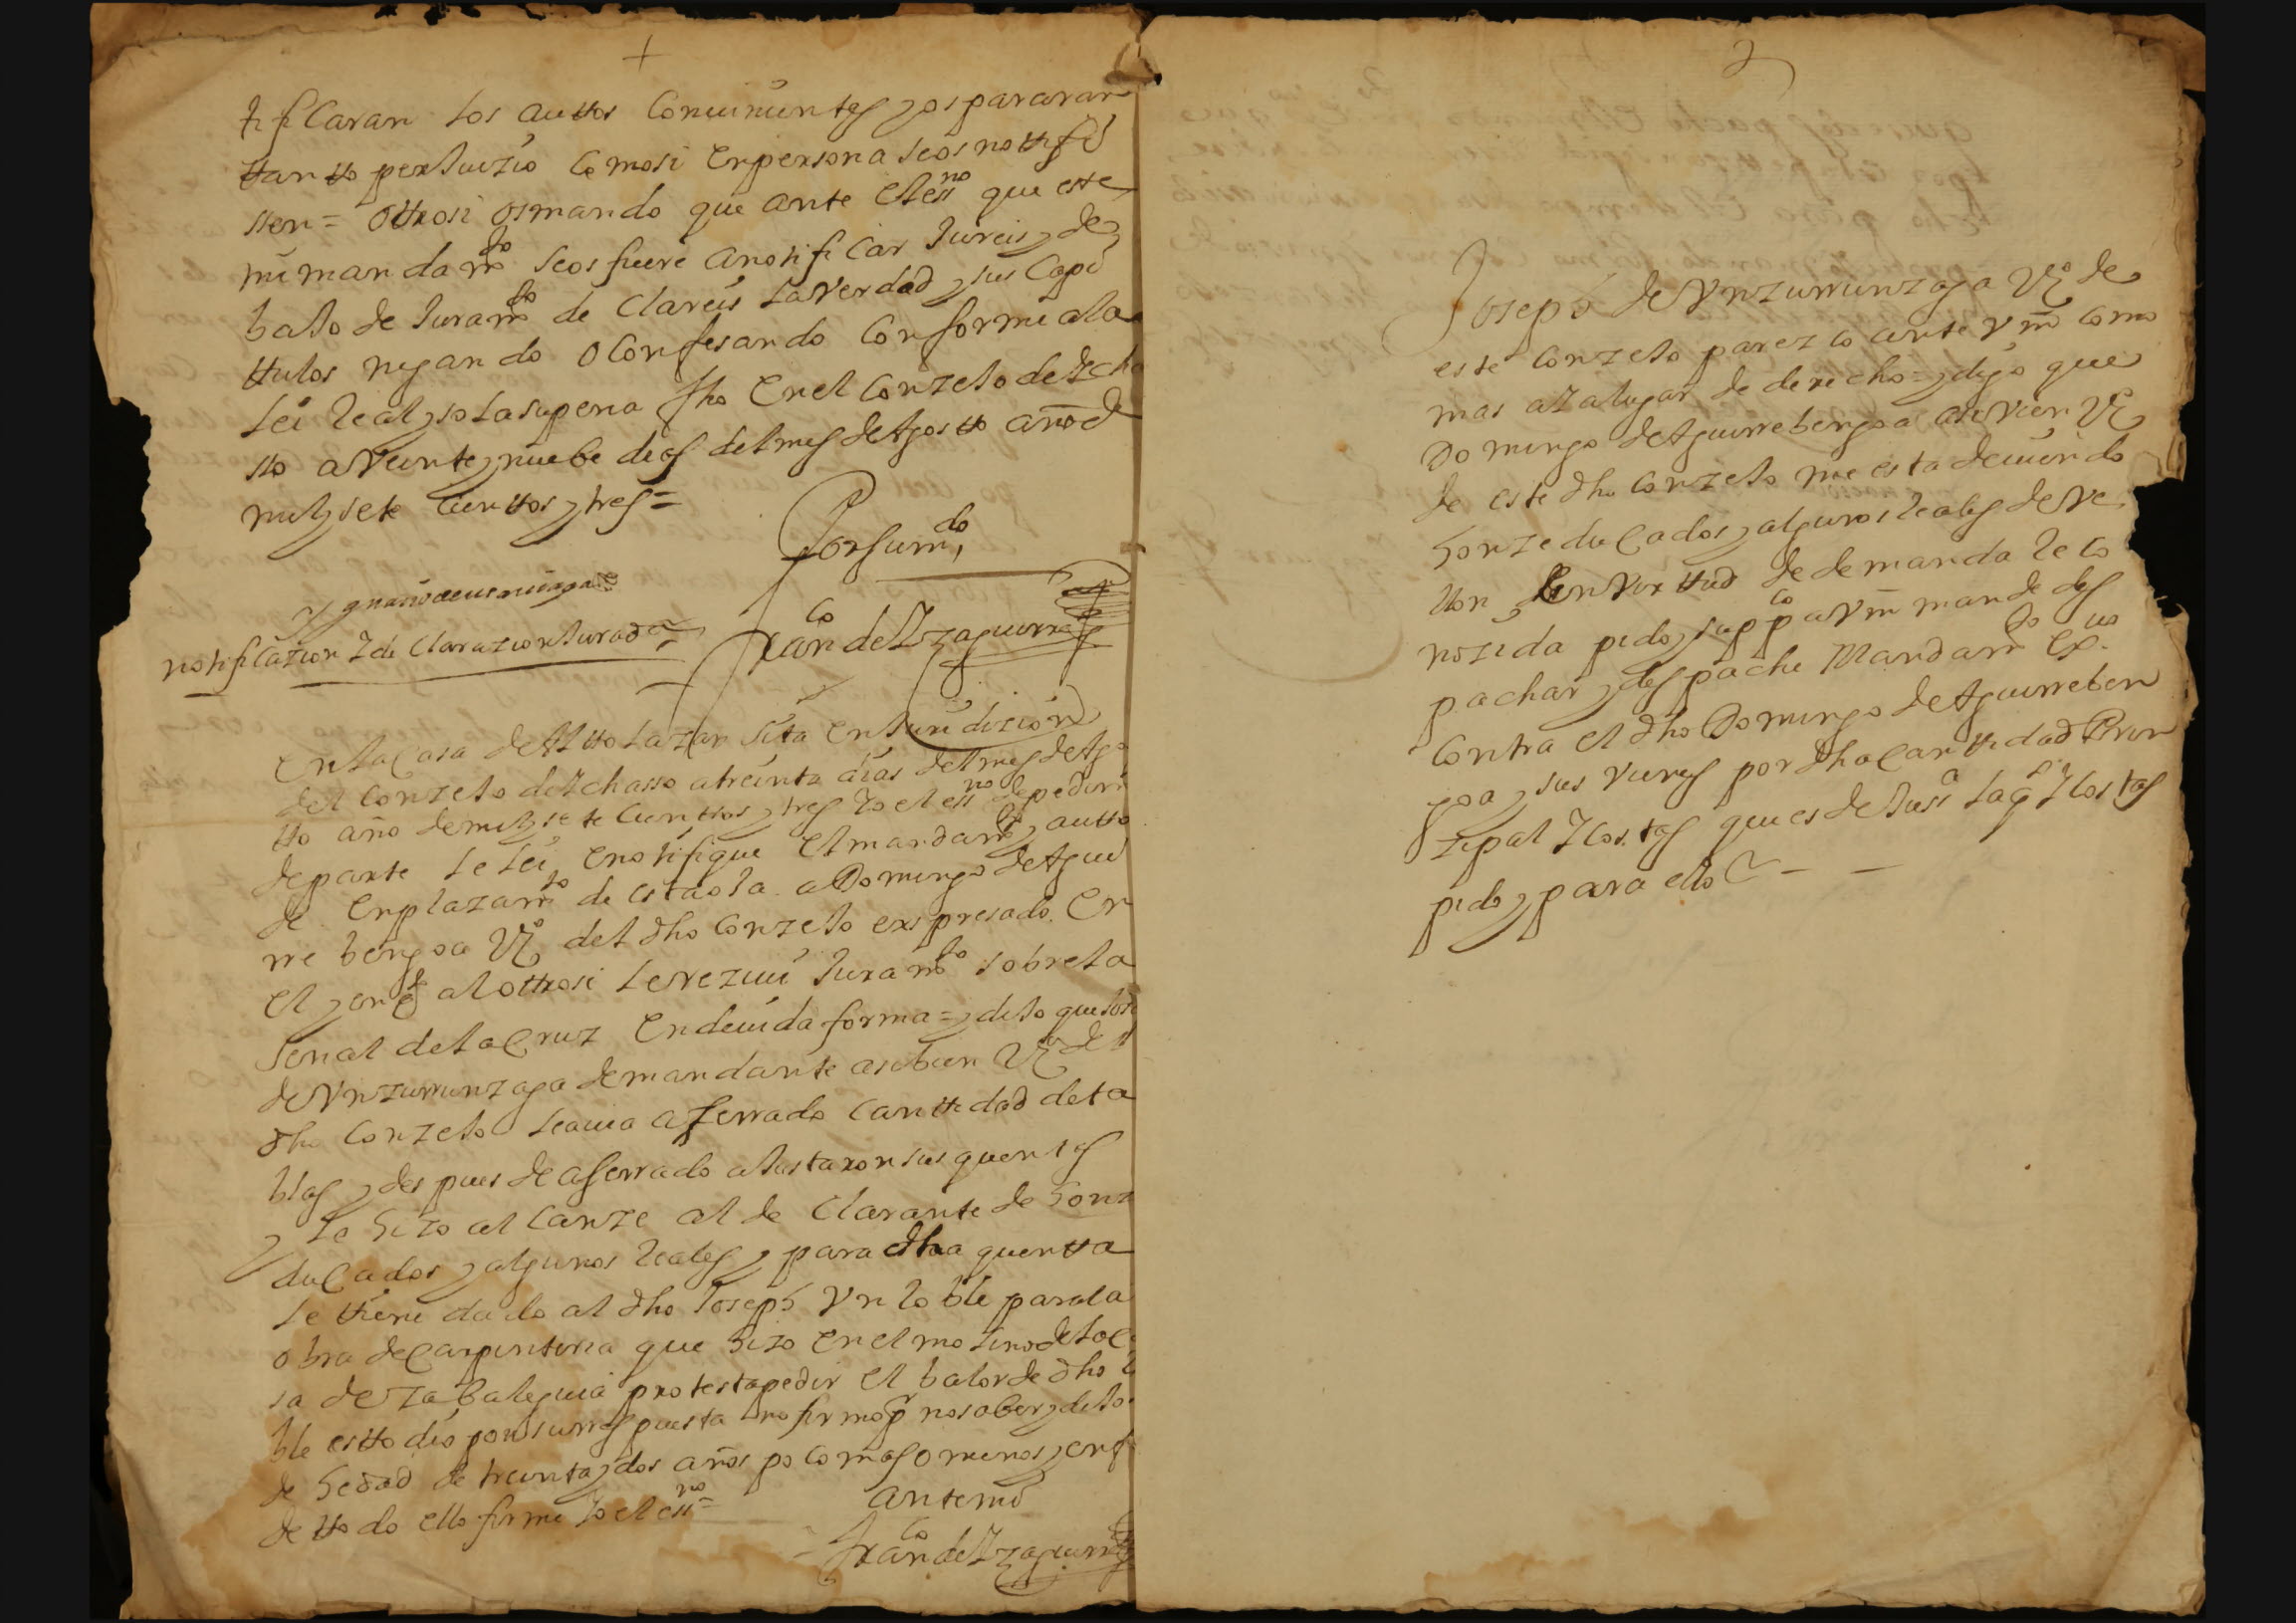 +
tificaran los auttos Conuinientes y os pararan
ttantto perJuizio Comosi Enpersona seos nottifi
ssen = ottrosi os mando que ante el essno que este
mi mandamto seos fuere a notificar Jureis y de
baJo de Juramto de Clareis la verdad y sus Capi
ttulos negando o Confesando Conforme a la
lei Real y so la su pena fho En el ConzeJo de Echa
sso a Veinte y nuebe dias del mes de Agostto año de
mil y sete Cienttos y tres =
Por su mdo
notificazion I de Clarazion Jurada
Franco de Yzaguirre
En la Casa de Alttolazar sita En Juridizion
del ConzeJo de Echasso a treinta dias del mes de Ago
tto año de mil y sete Cienttos y tres Yo el essno de pedimi
de parte le lei E notifique El mandamto y autto
de Enplazamto de esta oJa a Domingo de Agui
rre bengoa Vo del dho ConzeJo exspresado En
el y en qto al ottrosi le rezeui Juramto sobre la
senal de la Cruz En deuida forma = y diJo que Jose
de Vnzurrunzaga demandante asibien Vo del
dho ConzeJo leauia aserrado Canttidad de ta
blas y des pues de aserrado aJustaron sus quentas
y le hizo al Canze al de Clarante de honz
duCados y algunos Reales y para dha quentta
le ttiene dado al dho Joseph Vn Roble para la
obra de Carpinteria que hizo En el molino de la Ca
sa de zabaleguia protesta pedir El balor de dho R
ble estto dio por su rrespuesta no firmo pr no saber y diJo
de hedad de treinta y dos años poco mas o menos y enf
de ttodo ello firme Yo el essno =
ante mi
Franco de Yzaguirre
2
Joseph de Vnzurrunzaga Vo de
este ConzeJo parezco ante Vm Como
mas aza lugar de derecho = y digo que
Domingo de Aguirrebengoa asi vien Vo
de este dho ConzeJo me esta deuiendo
honze duCados y algunos Reales de Ve
llon En Virttud de demanda Re Co
nozida pido y suppco a Vm mande des
pachar y des pache Mandamto Exuo
Contra el dho Domingo de Aguirreben
goa y sus vienes por dha Canttidad Prin
zipal I Costas que es de Jussa la qe I Costas
pido y para ello